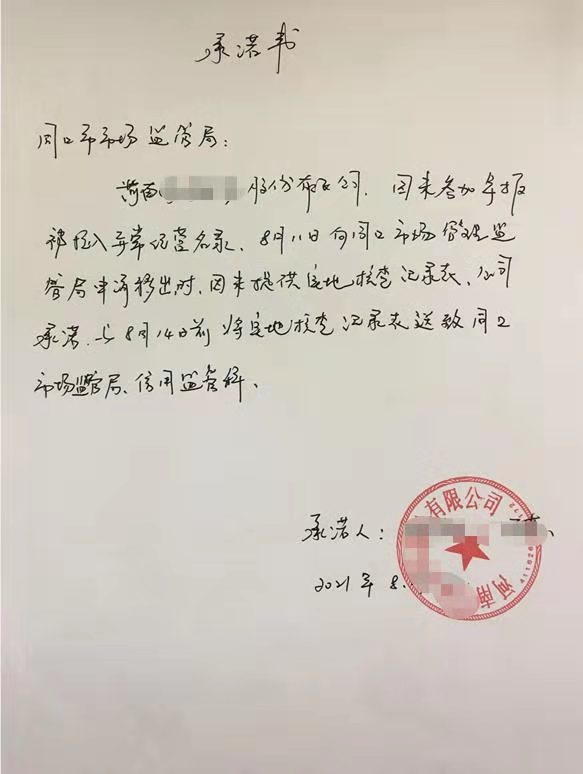 承诺书
周口市市场监管局：
股份有限公司，因未参加年报
被拉入异常经营名录、8月11日向周口市场管理监
管局申请移出时，因未提供实地核查记录表、公司
承诺、与8月14日前将实地核查记录表送致周口
市场监管局、信用监管科、
承诺人：
2021年8.
有限公司
河南